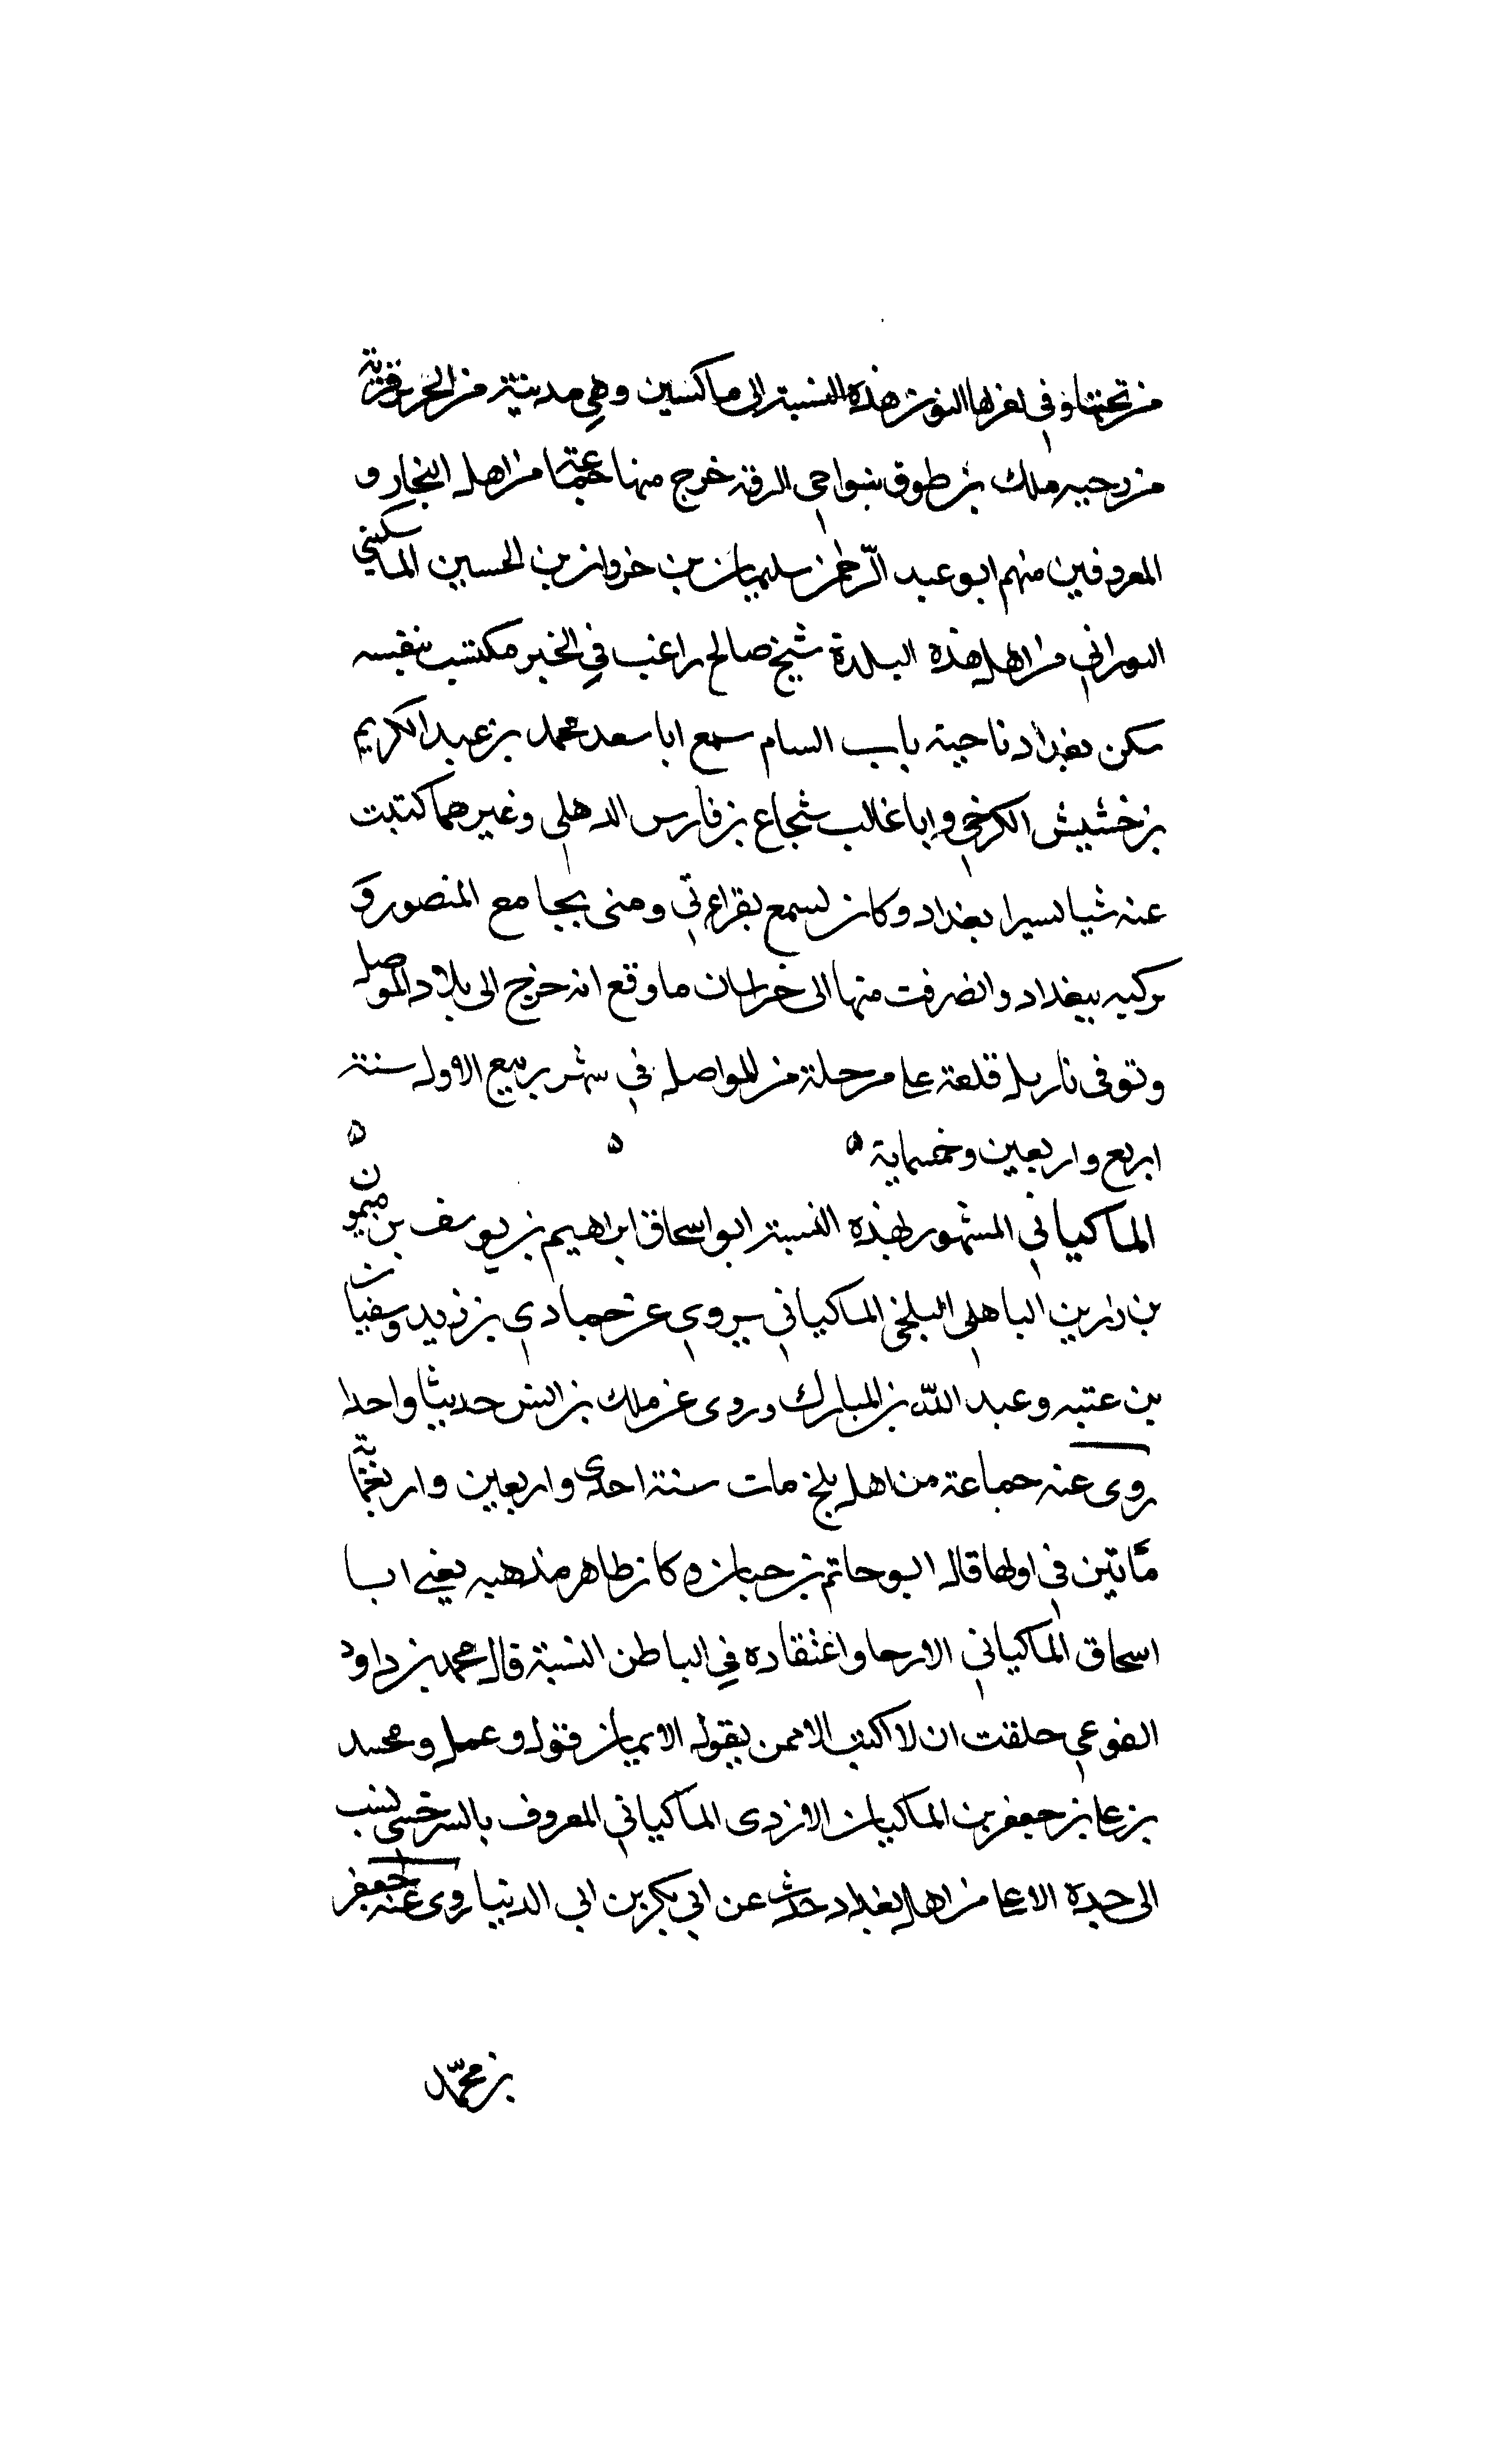 من تحتها وفي اخرها النون هذه النسبة الى ماكسين وهي مدينة من الجزيرة قريبة
من رحبه ملك بن طوق بنواحي الرقة خرج منها جماعة من اهل التجار و
المعروفين منهم ابو عبد الرحمن سليمان بن جروان بن الحسين الماكسيني
البوراني من اهل هذه البلدة شيخ صالح راغب في الخير مكتسب بنفسه
سكن بغداد ناحية باب السام سمع ابا سعد محمد بن عبد الكريم
بن خشيش الكرخي وابا غالب شجاع بن فارس الدهلي وغيرهما كتبت
عنه شيا يسيرا ببغداد وكان يسمع بقراءتي ومنى بجامع المنصور و
تركته ببغداد وانصرفت منها الى خراسان ما وقع انه خرج الى بلاد الموصل
وتوفى باربل قلعة على مرحلة من المواصل في شهر ربيع الاول سنة
اربع واربعين وخمسماية ه ه ه
الماكياني المشهور بهذه النسبة ابو اسحاق ابراهيم بن يوسف بن ميمون
بن رزين الباهلي البلخي الماكياني يروي عن حمادي بن زيد وسفيان
بن عتبه وعبد الله بن المبارك وروى عن ملك بن انس حديثا واحدا
روى عنه جماعة من اهل بلخ مات سنة احدى واربعين واربعماية
مأتين في اولها قال ابو حاتم بن حبان وكان ظاهر مذهبه يعني ابا
اسحاق الماكياني الارجا واعتقاده في الباطن النسبة قال محمد بن داود
الفوعي حلفت ان لا اكتب الا ممن يقول الايمان قول وعمل ومحمد
بن على بن جعفر بن الماكيان الازدى الماكياني المعروف بالسرخسي نسب
الى جده الاعلى من اهل بغداد حدث عن ابي بكر بن ابي الدنيا روى عنه جعفر
بن محمد